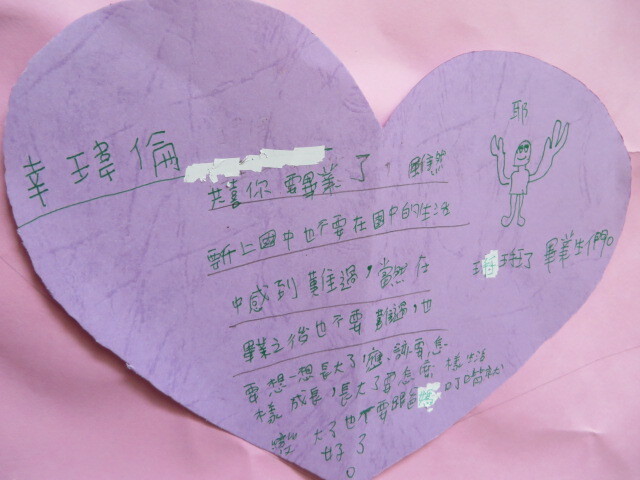 幸瑋倫
恭喜你要畢業了 雖然
要上國中也不要在國中的生活
中感到難過,當然在
畢業之後也不要難過,也
要想一想長大了,應該要怎
樣成長,長大了要怎麼樣生活
大了也不要
好了。
耶
了畢業生們。